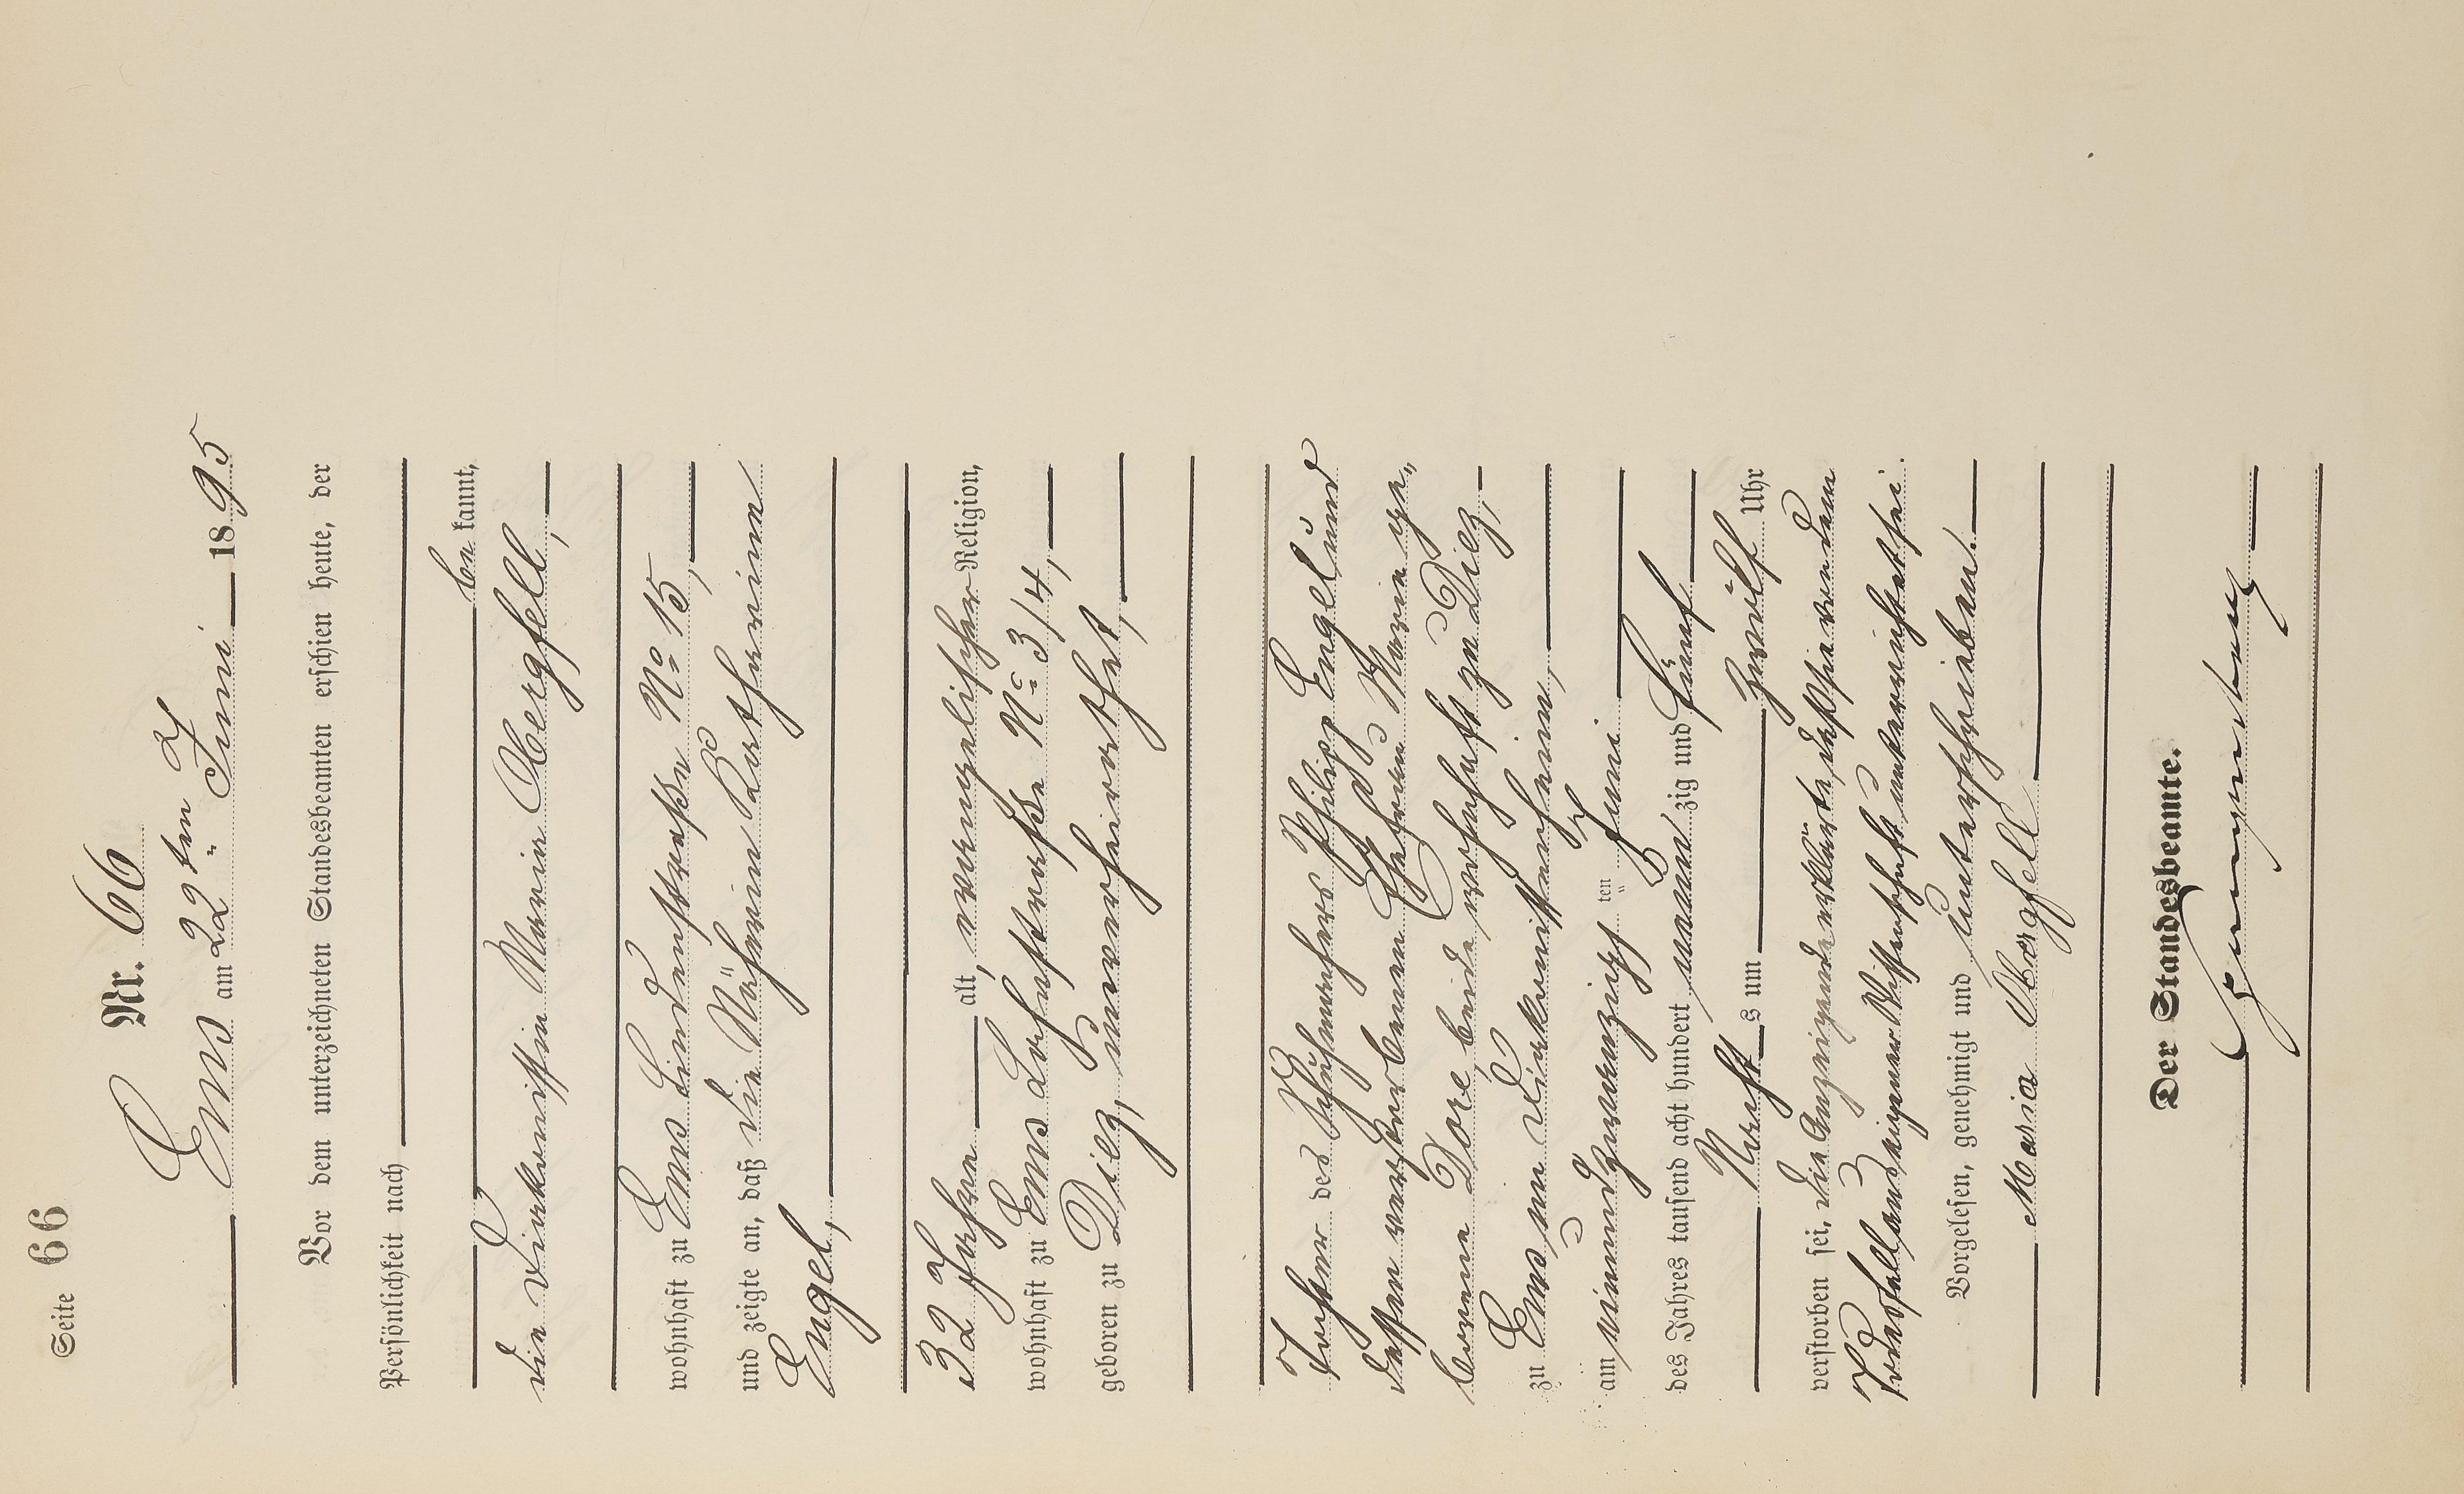 Seite 66
Nr. 66
Ems am 22ten Juni 1895
Vor dem unterzeichneten Standesbeamten erschien heute, der
Persönlichkeit nach
be kannt,
die Diakonissin Maria Obergfell,
wohnhaft zu Ems Lindenstraße No 15,
und zeigte an, daß die Näherin Katharina
Engel,
32 Jahre alt, evangelischer Religion,
wohnhaft zu Ems Lahnstraße No 3/4,
geboren zu Diez, unverheirathet,
Tochter des Schuhmachers Philipp Engel und
dessen verstorbenen Ehefrau Maria ge„
borene Dore, beide wohnhaft zu Diez,
zu Ems, im Diakonissenheim,
am einundzwanzigsten Juni
des Jahres tausend acht hundert neunzig und fünf
Nachts um zwölf Uhr
verstorben sei, die Anzeigende erklärte, daß sie von dem
Todesfall aus eigener Wissenschaft unterrichtet sei.
Vorgelesen, genehmigt und unterschrieben.
Maria Obergfell
Der Standesbeamte.